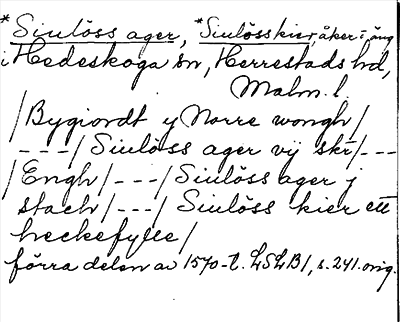 *Siulöss ager, *Siulösskier, åker = äng
i Hedeskoga sn, Herrestads hd,
Malm. l.
/Bygiordt y Norre wongh/
---/Siulöss ager vij skr/---
/Engh/---/Siulöss ager j
stach/---/Siulöss kier ett
heckefylle/
förra delen av 1570-t. LSLB1, s. 241. orig.